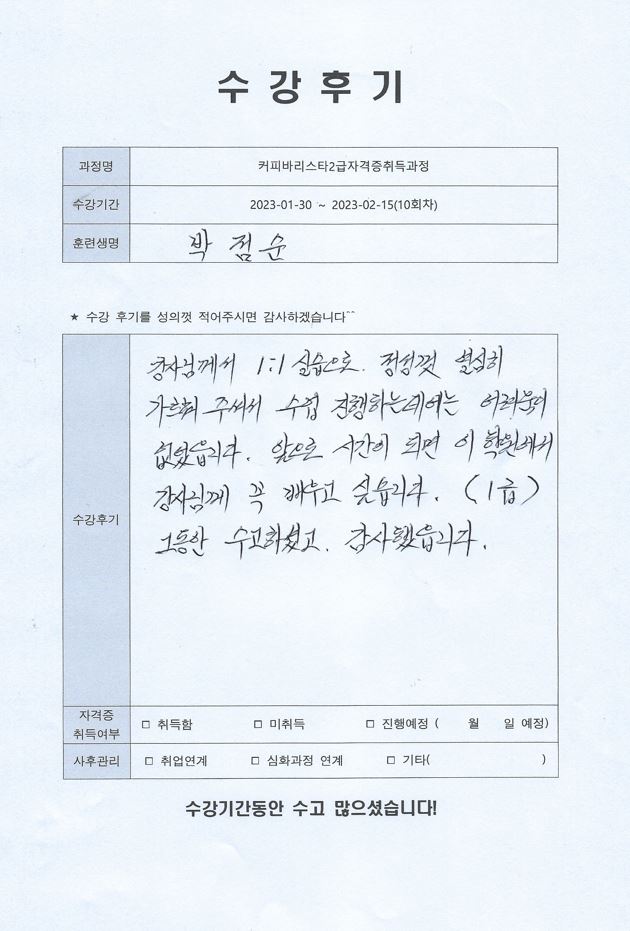 수 강 후 기
과정명 커피바리스타2급자격증취득과정
수강기간 2023-01-30 ~ 2023-02-15(10회차)
훈련생명 박 점 순
★ 수강 후기를 성의껏 적어주시면 감사하겠습니다^^
수강후기
강사님께서 1:1 실습으로. 정성껏 열심히
가르쳐 주셔서 수업 진행하는데에는 어려움이
없었읍니다. 앞으로 시간이 되면 이 학원에서
강사님께 꼭 배우고 싶읍니다. (1급)
그동안 수고하셨고. 감사했읍니다.
자격증
취득여부 □ 취득함 □ 미취득 □ 진행예정 ( 월 일 예정)
사후관리 □ 취업연계 □ 심화과정 연계 □ 기타( )
수강기간동안 수고 많으셨습니다!